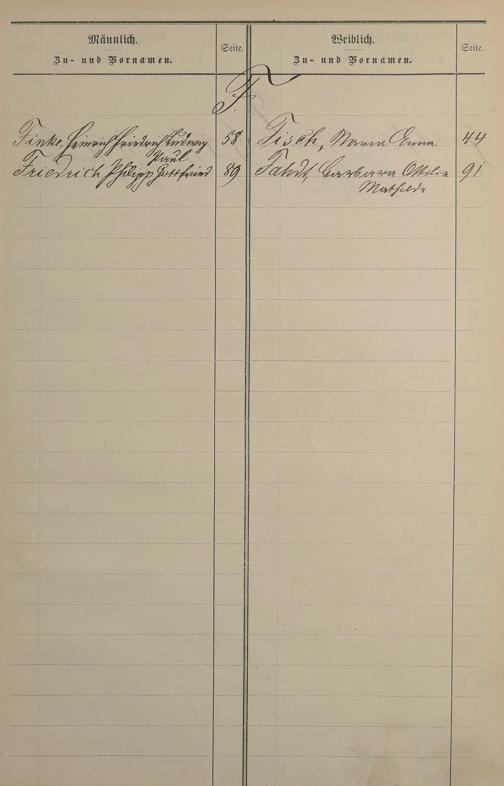 Männlich.
Zu- und Vornamen.
Seite.
Weiblich.
Zu- und Vornamen.
Seite.
F.
Finke, Heinrich Friedrich Ludwig 58
Paul
Friedrich, Philipp Gottfried 89
Fisch, Maria Anna 44
Fahdt, Barbara Ottilie 91
Mathilde